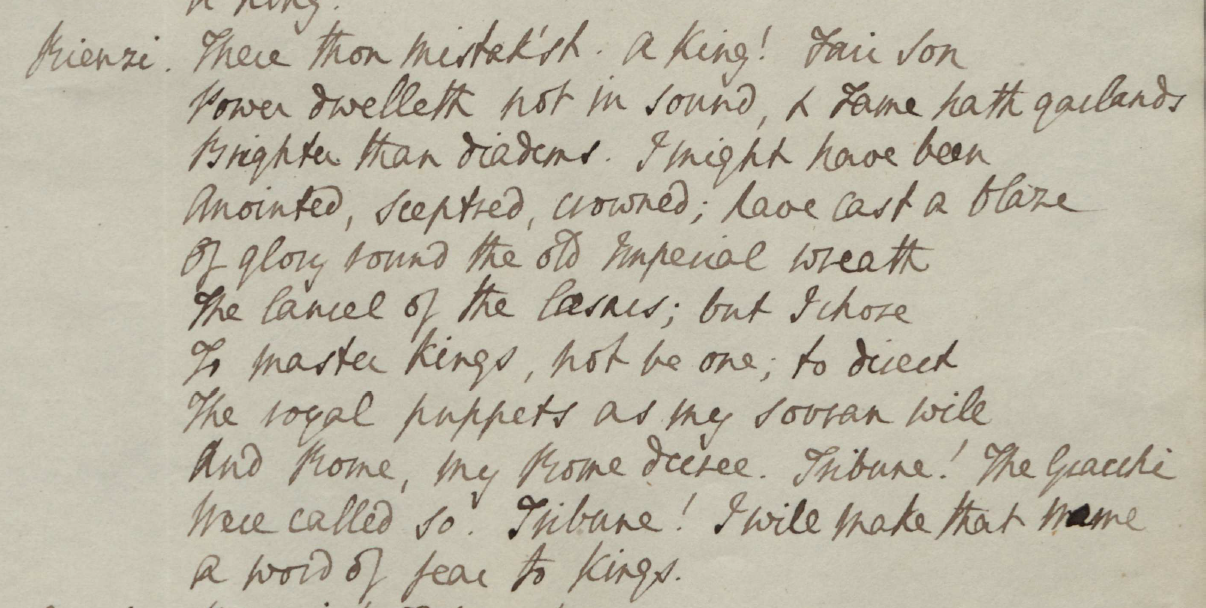 a King.
Rienzi. There thou mistak'st. A King! Fair Son
Power dwelleth not in sound, & Fame hath garlands
Brighter than diadems. I might have been
Anointed, sceptred, crowned; have cast a blaze
Of glory round the old Imperial wreath
The laurel of the Cæsars; but I chose
To master Kings, not be one; to direct
The royal puppets as my sovran will
And Rome, my Rome decree. Tribune! The Gracchi
Were called so. Tribune! I will make that name
A word of fear to Kings.